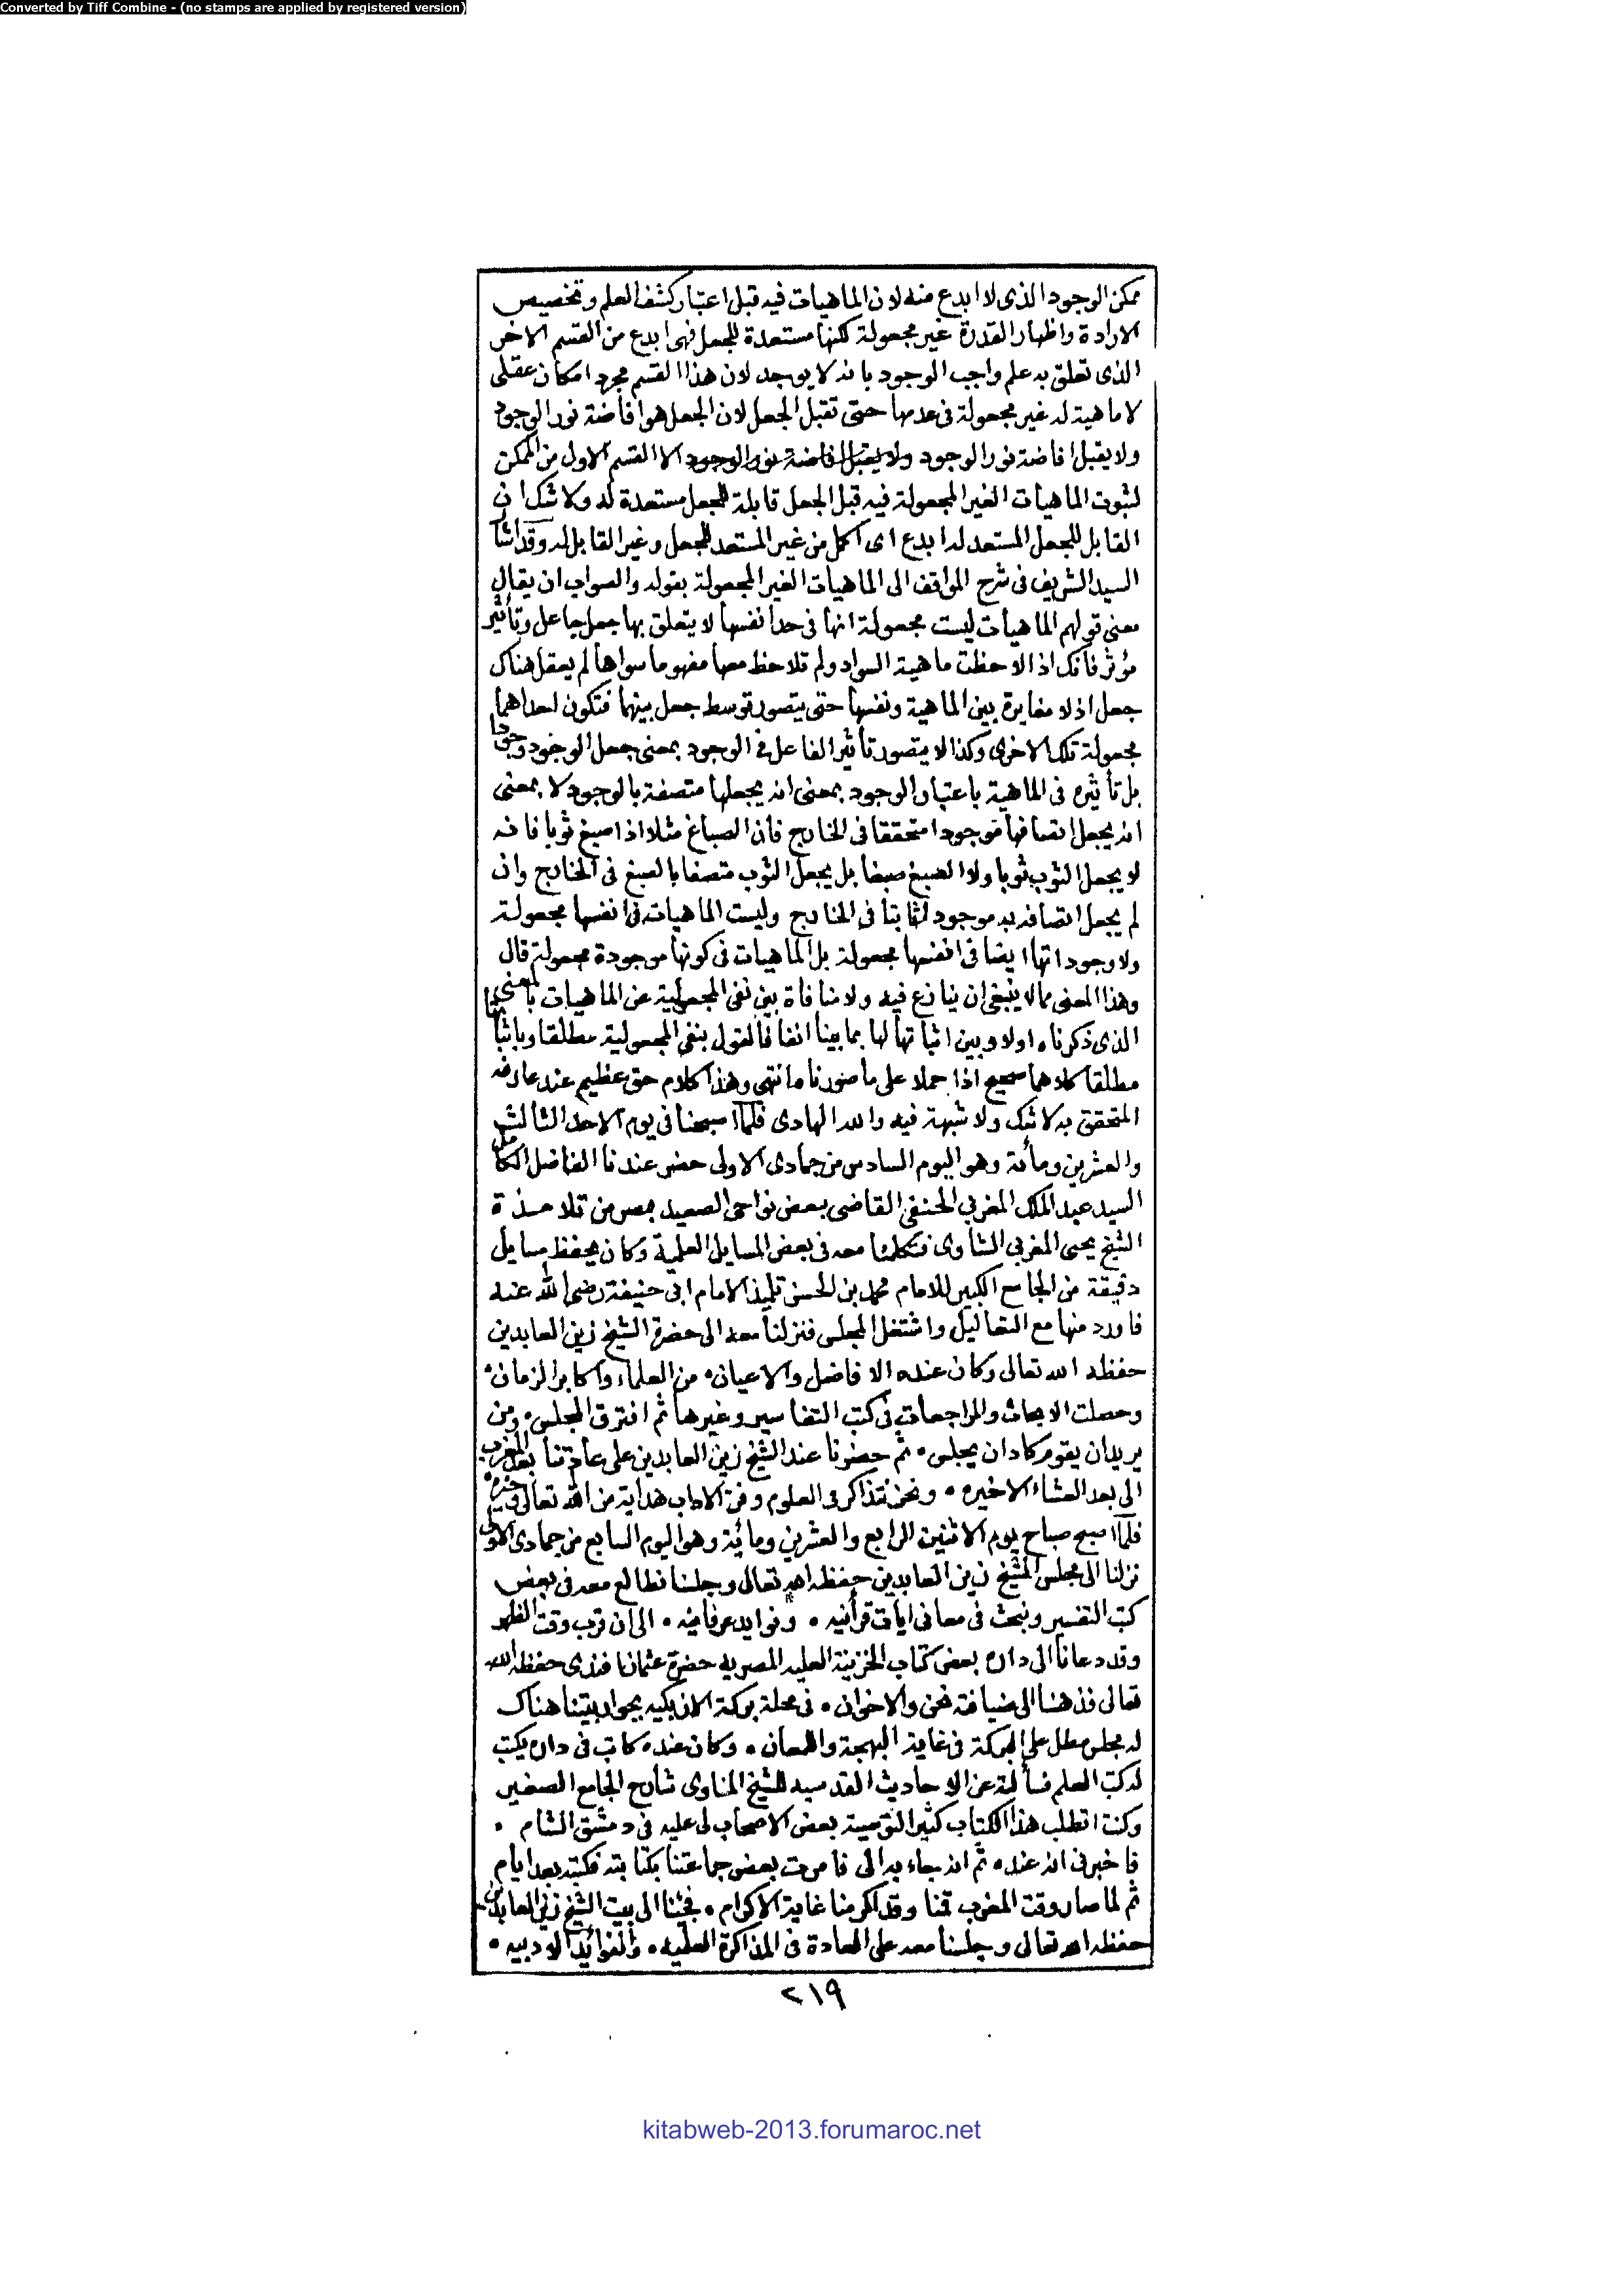 Converted by Tiff Combine - (no stamps are applied by registered version)
ممكن الوجود الذى لا ابدع منه لان الماهيات فيه قبل اعتبار كشف العلم وتخصيص
الارادة واظهار القدرة غير مجعولة لكنها مستعدة للجعل فهى ابدع من القسم الاخر
الذى تعلق به علم واجب الوجود بانه لا يوجد لان هذا القسم مجرد امكان عقلى
لا ماهية له غير مجعولة فى عدمها حتى تقبل الجعل لان الجعل هو افاضة نور الوجود
ولا يقبل افاضة نور الوجود ولا يقبل افاضة نور الوجود الا القسم الاول من الممكن
لثبوت الماهيات الغير المجعولة فيه قبل الجعل قابلة للجعل مستعدة له ولا شك ان
القابل للجعل المستعد له ابدع اى اكمل من غير المستعد للجعل وغير القابل له وقد اشار
السيد الشريف فى شرح المواقف الى الماهيات الغير المجعولة بقوله والصواب ان يقال
معنى قولهم الماهيات ليست مجعولة انها فى حد انفسها لا يتعلق بها جعل جاعل وتأثير
مؤثر فانك اذا لاحظت ماهية السواد ولم تلاحظ معها مفهوما سواها لم يعقل هناك
جعل اذ لا مغايرة بين الماهية ونفسها حتى يتصور توسط جعل بينهما فتكون احداهما
مجعولة تلك الاخرى وكذا لا يتصور تأثير الفاعل فى الوجود بمعنى جعل الوجود وجودا
بل تأثيره فى الماهية باعتبار الوجود بمعنى انه يجعلها متصفة بالوجود لا بمعنى
انه يجعل اتصافها موجودا متحققا فى الخارج فان الصباغ مثلا اذا صبغ ثوبا فانه
لا يجعل الثوب ثوبا ولا الصبغ صبغا بل يجعل الثوب متصفا بالصبغ فى الخارج وان
لم يجعل اتصافه به موجودا ثابتا فى الخارج وليست الماهيات فى انفسها مجعولة
ولا وجوداتها ايضا فى انفسها مجعولة بل الماهيات فى كونها موجودة مجعولة قال
وهذا المعنى مما لا ينبغى ان ينازع فيه ولا منافاة بين نفى المجعولية عن الماهيات بالمعنى
الذى ذكرناه اولا وبين اثباتها لها بما بينا انفا فالقول بنفى المجعولية مطلقا وباثباتها
مطلقا كلاهما صحيح اذا حملا على ما صورناه انتهى وهذا كلام حق عظيم عند عارفه
المتحقق به لا شك ولا شبهة فيه والله الهادى فلما اصبحنا فى يوم الاحد الثالث
والعشرين ومأئة وهو اليوم السادس من جمادى الاولى حضر عندنا الفاضل الكامل
السيد عبد الملك المغربى الحنفى القاضى ببعض نواحى الصعيد بمصر من تلامذة
الشيخ يحيى المغربى الشاوى فتكلمنا معه فى بعض المسايل العلمية وكان يحفظ مسايل
دقيقة من الجامع الكبير للامام محمد بن الحسن تلميذ الامام ابى حنيفة رضى الله عنه
فاورد منها مع التعاليل واشتغل المجلس فنزلنا معه الى حضرة الشيخ زين العابدين
حفظه الله تعالى وكان عنده الافاضل والاعيان ٠ من العلماء واكابر الزمان ٠
وحصلت الابحاث والمراجعات فى كتب التفاسير وغيرها ثم افترق المجلس ٠ ومن
يريد ان يقوم كاد ان يجلس ٠ ثم حضرنا عند الشيخ زين العابدين على عادتنا بعد المغرب
الى بعد العشاء الاخيره ٠ ونحن نتذاكر فى العلوم وفن الاداب هداية من الله تعالى
فلما اصبح صباح يوم الاثنين الرابع والعشرين ومائة وهو اليوم السابع من جمادى الاولى
نزلنا الى مجلس الشيخ زين العابدين حفظه الله تعالى وجلسنا نطالع معه فى بعض
كتب التفسير ونبحث فى معانى ايات قرآنيه ٠ وفوايد عرفانيه ٠ الى ان قرب وقت الظهر
وقد دعانا الى داره بعض كتاب الخزينة العليه المصريه حضرة عثمان افندى حفظه الله
تعالى فذهبنا الى ضيافته نحن والاخوان ٠ فى محلة بركة الازبكيه بجوار بيتنا هناك
له مجلس مطل على البركة فى غاية البهجة واللمعان ٠ وكان عنده كاتب فى داره يكتب
له كتب العلم فسألته عن الاحاديث القدسيه للشيخ المناوى شارح الجامع الصغير
وكنت اتطلب هذا الكتاب كثيرا لتوصية بعض الاصحاب لى عليه فى دمشق الشام ٠
فاخبرنى انه عنده ثم انه جاء به الى فامرت بعض جماعتنا بكتابته فكتبه بعد ايام
ثم لما صار وقت المغرب قمنا وقد اكرمنا غاية الاكرام ٠ فجئنا الى بيت الشيخ زين العابدين
حفظه الله تعالى وجلسنا معه على العادة فى المذاكرة العلميه ٠ والفوائد الادبيه ٠
٢١٩
kitabweb-2013.forumaroc.net